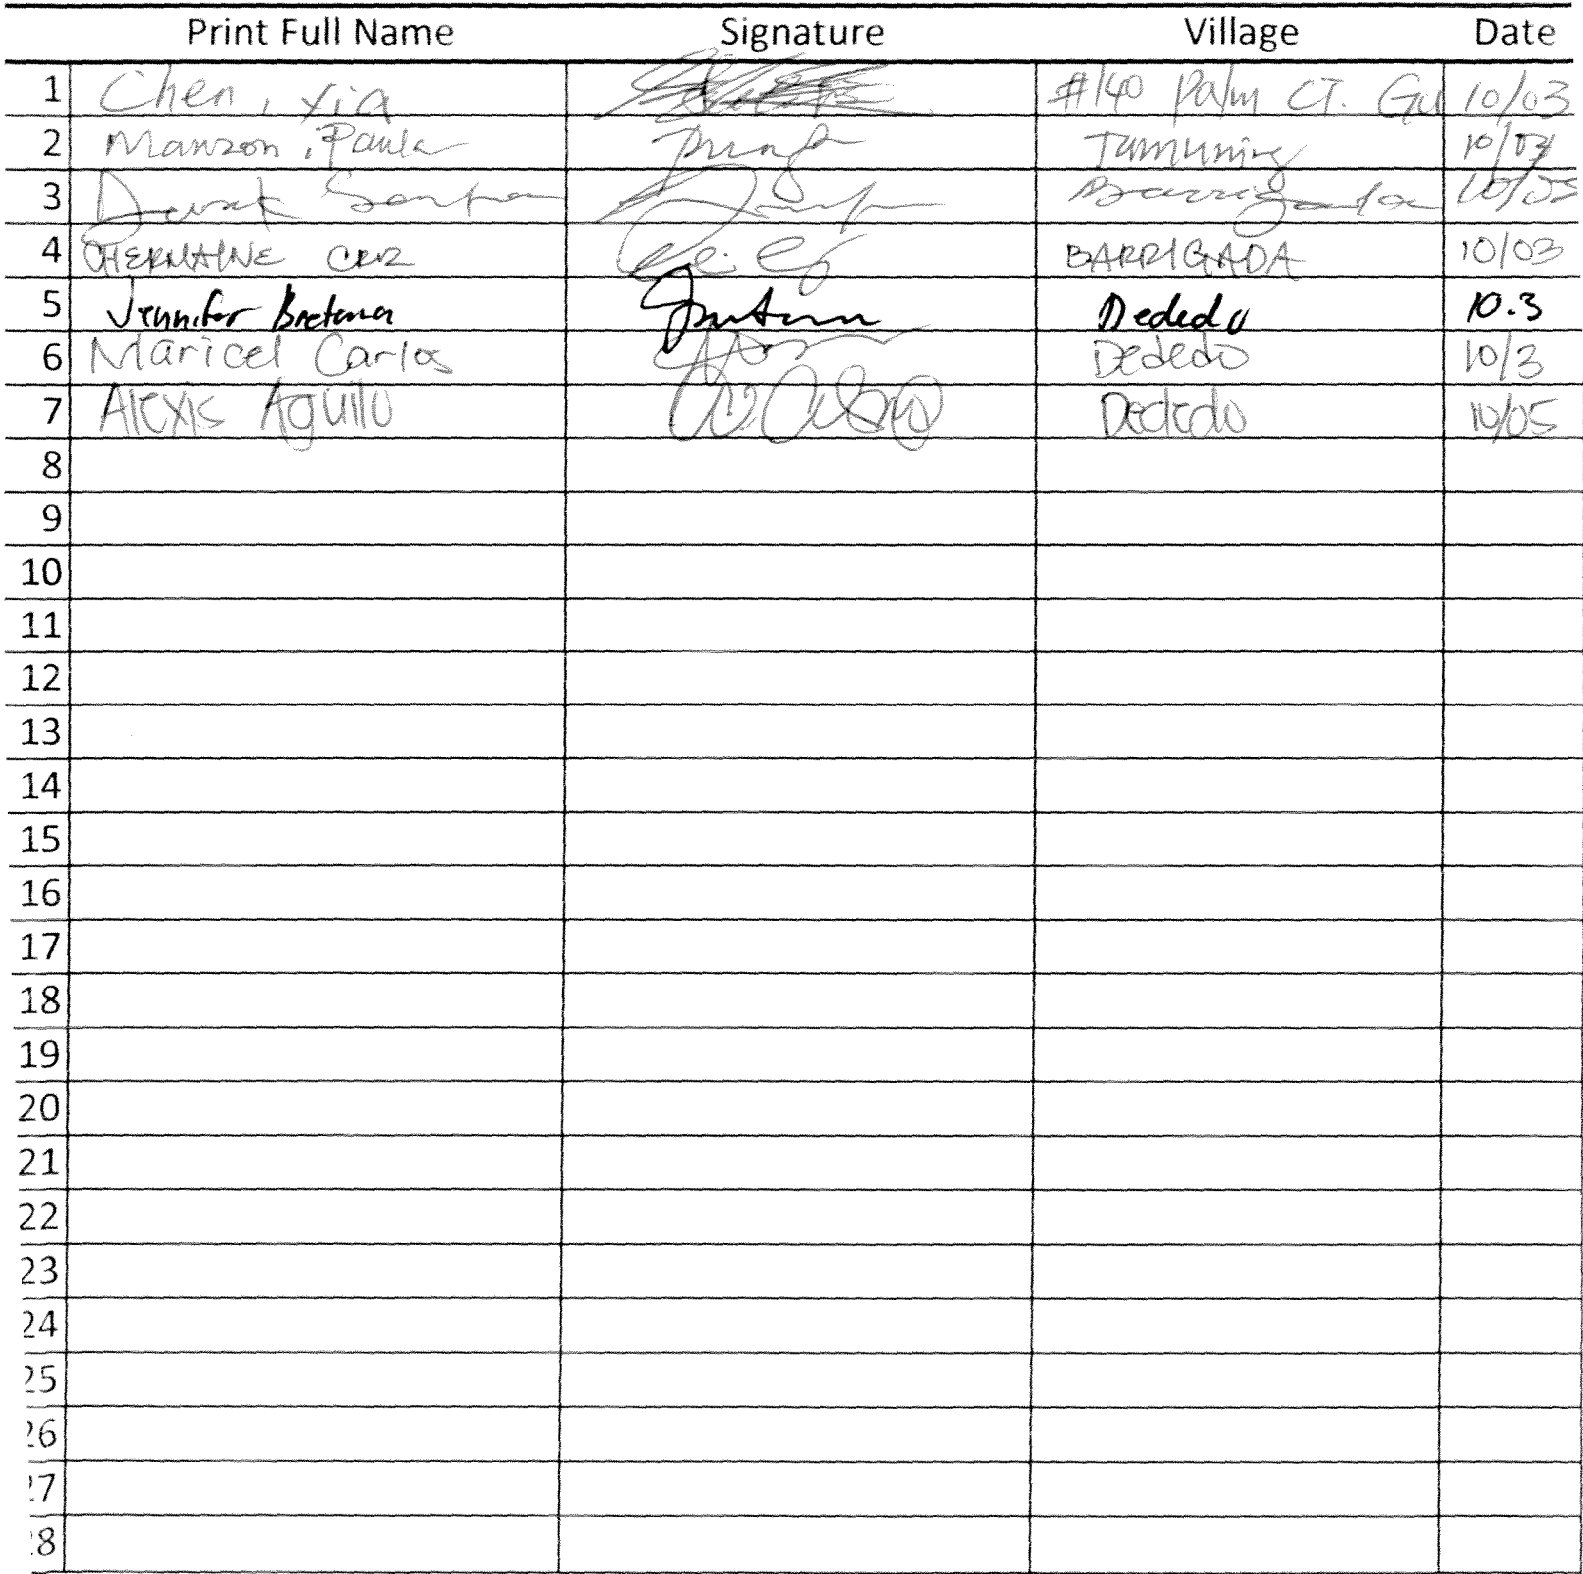 Print Full Name Signature Village Date
1 Chen, Xia #140 Palm CT. Gu 10/03
2 Manzon, Paula Tamuning 10/03
3 Barrigada 10/03
4 CHERMAINE CRUZ BARRIGADA 10/03
5 Jennifer Bretana Dededo 10.3
6 Maricel Carlos Dededo 10/3
7 Alexis Aguilo Dededo 10/05
8
9
10
11
12
13
14
15
16
17
18
19
20
21
22
23
24
25
26
27
28